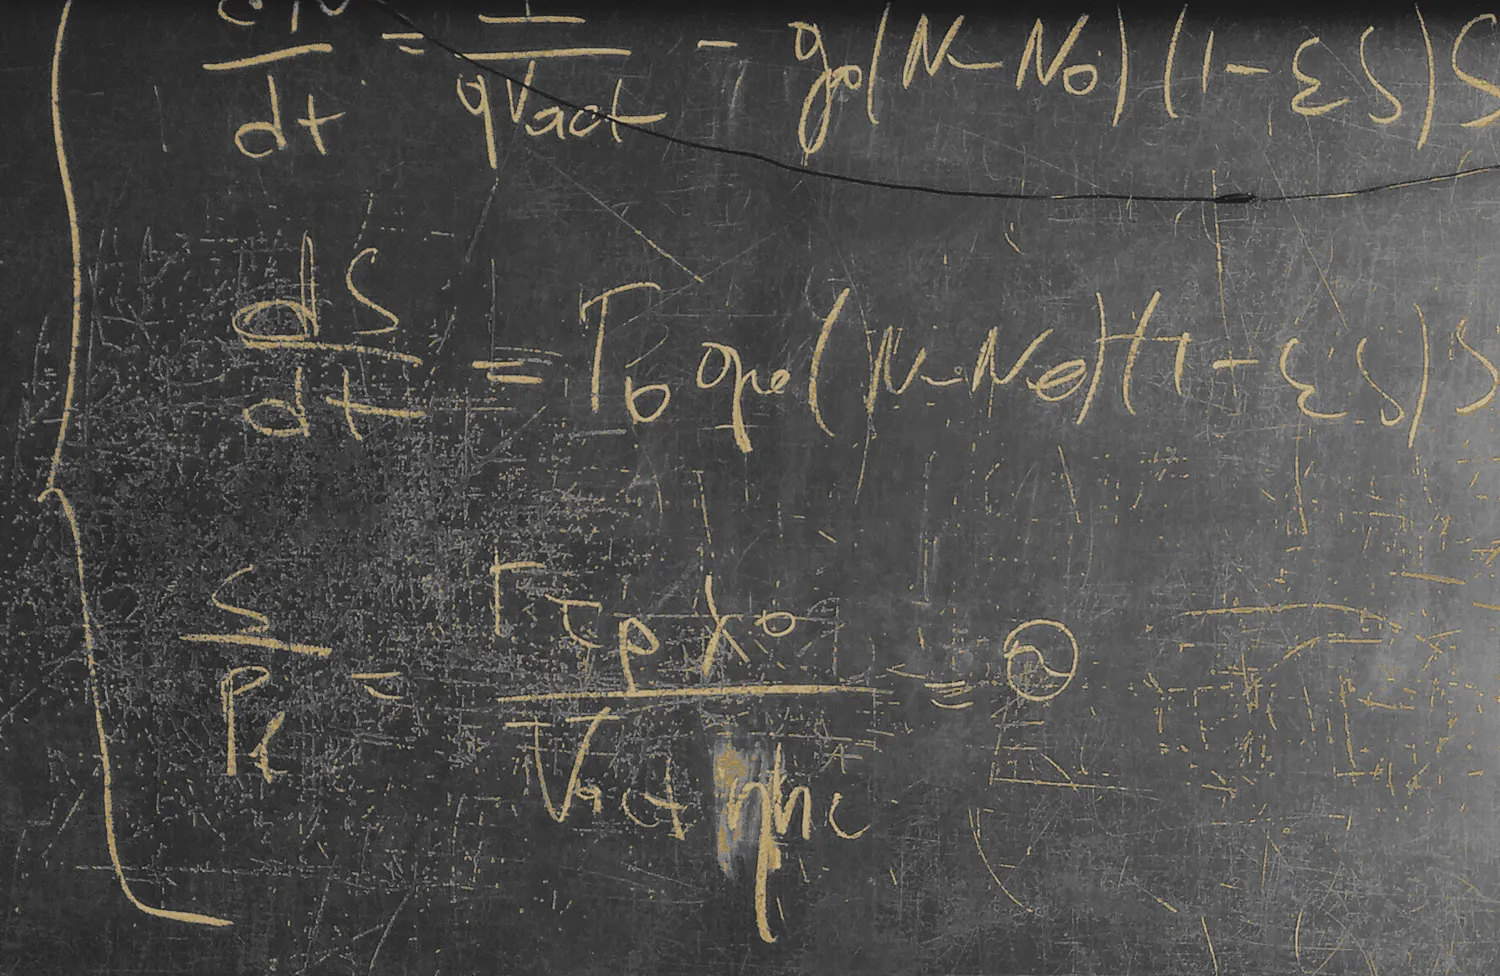 dN/dt = I/qVact - g₀(N-N₀)(1-εS)S
dS/dt = Γ₀ g₀(N-N₀)(1-εS)S
S/Pf = Γτpλ₀/Vact ηhc = ⊖